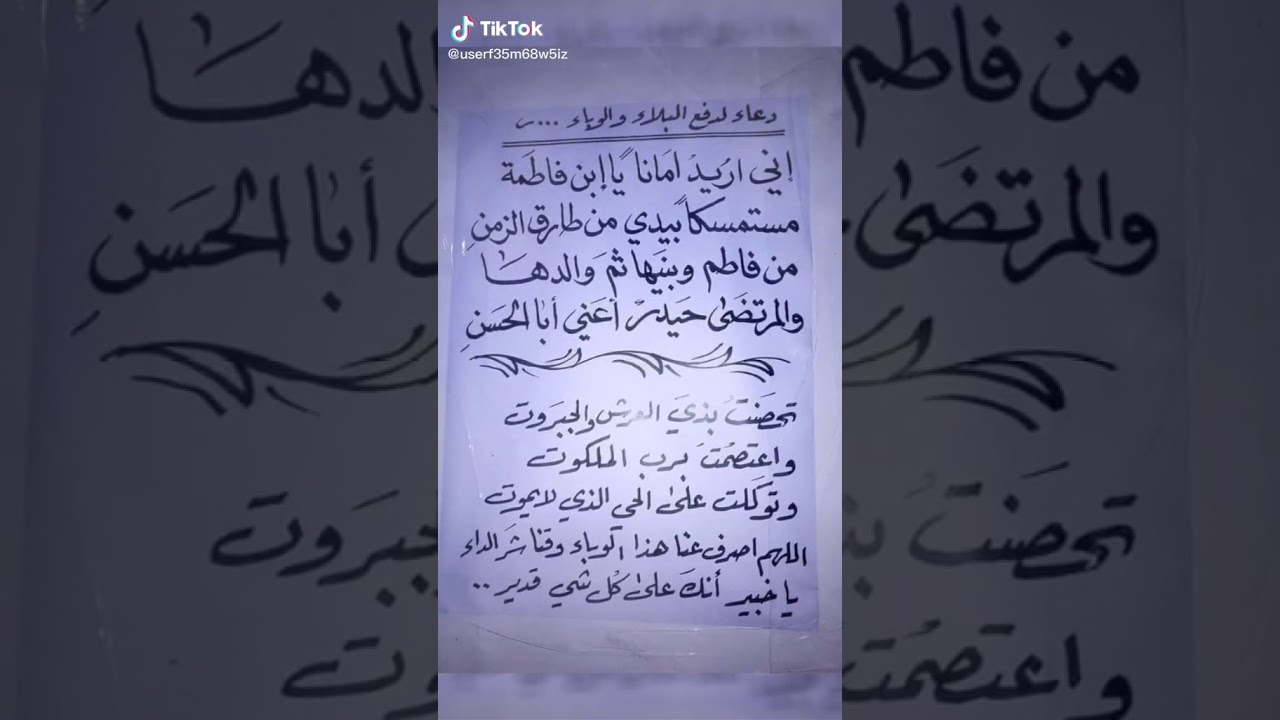 TikTok
@userf35m68w5iz
دعاء لدفع البلاء والوباء ...
إني اريدُ امَاناً يَا إبن فاطَمة
مستمسكاً بيدي من طارق الزمنِ
من فاطم وبنيَها ثمَ وَالدهَا
والمرتضَىٰ حَيدرْ أعَني أبا الحَسَنِ
تحصَنتُ بذيَ العرش والجبَروت
واعتصمُت برب الملكوت
وتوكَلت علىٰ الحي الذي لايموت
اللهم اصرف عنا هذا الوباء وقنا شرَ الداء
يا خبير أنكَ علىٰ كُل شي قدير ..
من فاطم
والدها
والمرتضَىٰ
أبا الحَسَنِ
تحصَنتُ بذ
جبَروت
واعتصمُت